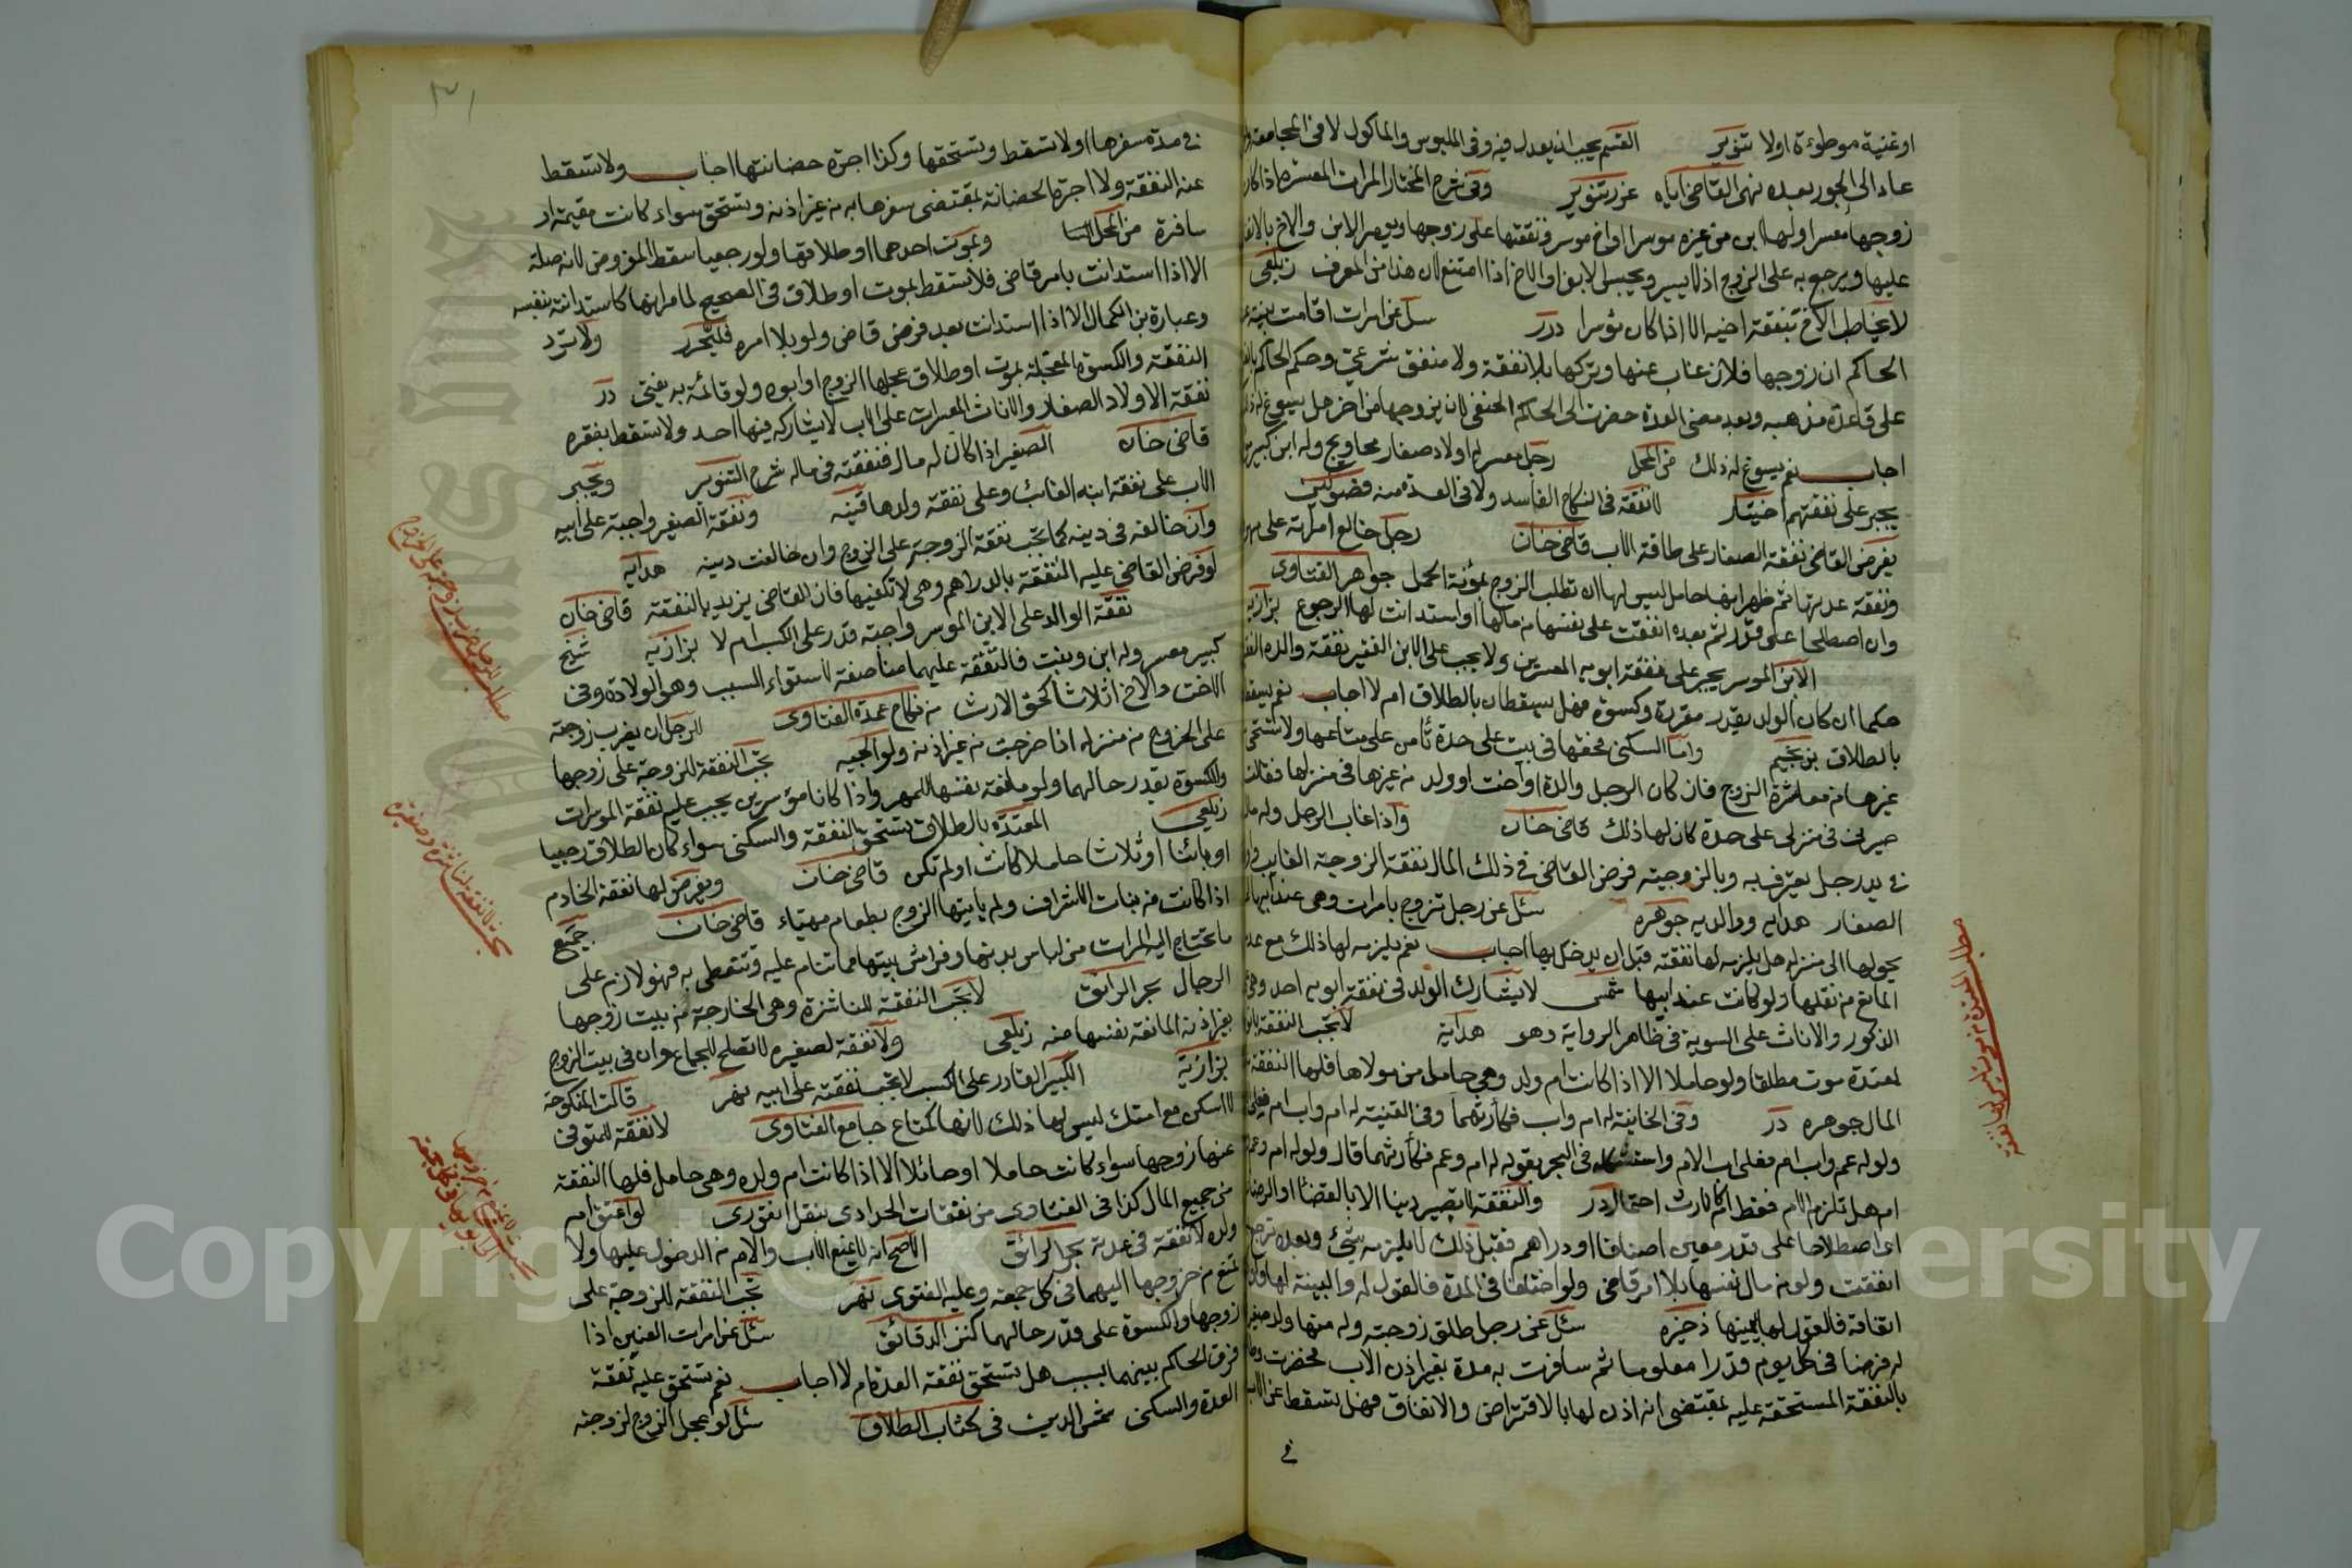 اوغنية موطوءة اولا تنوير القسم يجب ان يعدل فيه وفى الملبوس والماكول لا فى المجامعة
عاد الى الجور بعده نهى القاضى اياه عزر تنوير وفى شرح المختار المرات المعسرة اذا كان
زوجها معسرا ولها ابن من غيره موسرا او اخ موسر فنفقتها على زوجها ويومر الابن والاخ بالانفاق
عليها ويرجع به على الزوج اذا ايسر ويحبس الابن او الاخ اذا امتنع لان هذا من المعرف زيلعى
لا يخاطب الاخ بنفقة اخيه الا اذا كان موسرا درر سئل عن امرات اقامت بينة
الحاكم ان زوجها فلان غاب عنها وتركها بلا نفقة ولا منفق شرعى وحكم الحاكم
على قاعدة مذهبه وبعد مضى العدة حضرت الى الحاكم الحنفى لان يزوجها من اخر هل يسوغ له ذلك
اجاب نعم يسوغ له ذلك من المحل رجل معسر له اولاد صغار محاويج وله ابن كبير
يجبر على نفقتهم لا نفقة فى النكاح الفاسد ولا فى العدة منه
يفرض القاضى نفقة الصغار على طاقة الاب قاضى خان رجل خالع امراته على
ونفقة عدتها ثم ظهر انها حامل ليس لها ان تطلب الزوج بمؤنة الحمل جواهر الفتاوى
وان اصطلحا على قدر ثم بعده انفقت على نفسها من مالها او استدانت لها الرجوع بزازية
الابن الموسر يجبر على نفقة ابويه المعسرين ولا يجب على الابن الفقير نفقة والده
حكما ان كان الولد يقدر مقررة وكسوة فهل يسقطان بالطلاق ام لا اجاب نعم
بالطلاق بن نجيم واما السكنى فحقها فى بيت على حدة تأمن على متاعها ولا تستحى
غيرها من معاشرة الزوج فان كان الرجل والدة او اخت او ولد من غيرها فى منزلها فقالت
صيرنى فى منزلى على حدة كان لها ذلك قاضى خان واذا غاب الرجل وله
فى يد رجل يعترف به وبالزوجية فرض القاضى فى ذلك المال نفقة الزوجة الغايب
الصغار هدايه ووالديه جوهره سئل عن رجل تزوج بامرات وهى عند ابيها
يحولها الى منزله هل يلزمه لها نفقة قبل ان يدخل بها اجاب نعم يلزمه لها ذلك مع عدم
المانع من نقلها ولو كانت عند ابيها شمس لا يشارك الولد فى نفقة ابويه احد وهى
الذكور والاناث على السوية فى ظاهر الرواية وهو هداية لا تجب النفقة
لمعتدة موت مطلقا ولو حاملا الا اذا كانت ام ولد وهى حامل من مولاها فلها النفقة
المال جوهره در وفى الخانية له ام واب فكارثهما وفى القنية له ام واب ام
ولو له عم واب ام فعلى اب الام واستشكله فى البحر بقوله له ام وعم فكارثهما قال ولو له ام وعم
ام هل تلزم الام فقط ام كالارث احتمال در والنفقة لا تصير دينا الا بالقضا او الرضا
اى اصطلاحا على قدر معين اصنافا او دراهم فقبل ذلك لا يلزمه شئ وبعده ترجع
انفقت ولو من مال نفسها بلا امر قاضى ولو اختلفا فى المدة فالقول له والبينة لها
اتفاقه فالقول لها بيمينها ذخيره سئل عن رجل طلق زوجته وله منها ولد صغير
له فرضا فى كل يوم قدرا معلوما ثم سافرت به مدة بغير اذن الاب فحضرت
بالنفقة المستحقة عليه بمقتضى انه اذن لها بالاقتراض والانفاق فهل تسقط عن الاب
فى
فى مدة سفرها اولا تسقط وتستحقها وكذا اجرة حضانتها اجاب ولا تسقط
عنه النفقة ولا اجرة الحضانة بمقتضى سفرها به من غير اذنه وتستحق سواء كانت مقيمة او
سافرة من المحل وبموت احدهما او طلاقها ولو رجعيا سقط المفروض لانه صلة
الا اذا استدانت بامر قاضى فلا تسقط بموت او طلاق فى الصحيح لما مر انها كاستدانته بنفسه
وعبارة بن الكمال الا اذا استدانت بعد فرض قاضى ولو بلا امره فليحرر ولا ترد
النفقة والكسوة المعجلة بموت او طلاق عجلها الزوج او ابوه ولو قائمة به يفتى در
نفقة الاولاد الصغار والاناث المعسرات على الاب لا يشاركه فيها احد ولا تسقط بفقره
قاضى خان الصغير اذا كان له مال فنفقته فى ماله شرح التنوير ويجبر
الاب على نفقة ابنه الغائب وعلى نفقة ولدها قنيه ونفقة الصغير واجبة على ابيه
وان خالفه فى دينه كما تجب نفقة الزوجة على الزوج وان خالفت دينه هدايه
لو فرض القاضى عليه النفقة بالدراهم وهى لا تكفيها فان القاضى يزيد بالنفقة قاضى خان
نفقة الوالد على الابن الموسر واجبة قدر على الكسب ام لا بزازيه شيخ
كبير معسر وله ابن وبنت فالنفقة عليهما مناصفة لاستواء السبب وهو الولادة وفى
الاخت والاخ اثلاثا كحق الارث من نكاح عمدة الفتاوى للرجل ان يضرب زوجته
على الخروج من منزله اذا خرجت من غير اذنه ولوالجيه تجب النفقة للزوجة على زوجها
والكسوة بقدر حالهما ولو مانعة نفسها للمهر واذا كانا موسرين يجب عليه نفقة الموسرات
زيلعى المعتدة بالطلاق تستحق النفقة والسكنى سواء كان الطلاق رجعيا
او بائنا او ثلاثا حاملا كانت او لم تكن قاضى خان ويفرض لها نفقة الخادم
اذا كانت من بنات الاشراف ولم ياتيها الزوج بطعام مهياء قاضى خان جميع
ما تحتاج اليه المرات من لباس بدنها وفراش بيتها مما تنام عليه وتتغطى به فهو لازم على
الرجال بحر الرائق لا تجب النفقة للناشزة وهى الخارجة من بيت زوجها
بغير اذنه المانعة نفسها منه زيلعى ولا نفقة لصغيره لا تصلح للجماع وان فى بيت الزوج
بزازية الكبير القادر على الكسب لا تجب نفقته على ابيه نهر قالت المنكوحة
لا اسكن مع امتك ليس لها ذلك لانها كمتاع جامع الفتاوى لا نفقة للمتوفى
عنها زوجها سواء كانت حاملا او حائلا الا اذا كانت ام ولده وهى حامل فلها النفقة
من جميع المال كذا فى الفتاوى من نفقات الحدادى بنقل انقروى لو اعتق ام
ولده لا نفقة فى عدته بحر الرائق الاصح انه لا يمنع الاب والام من الدخول عليها ولا
تمنع من خروجها اليهما فى كل جمعة وعليه الفتوى نهر تجب النفقة للزوجة على
زوجها والكسوة على قدر حالهما كنز الدقائق سئل عن امرات العنين اذا
فرق الحاكم بينهما بسبب هل تستحق نفقة العدة ام لا اجاب نعم تستحق عليه نفقة
العدة والسكنى شمس الدين فى كتاب الطلاق سئل لو عجل الزوج لزوجته